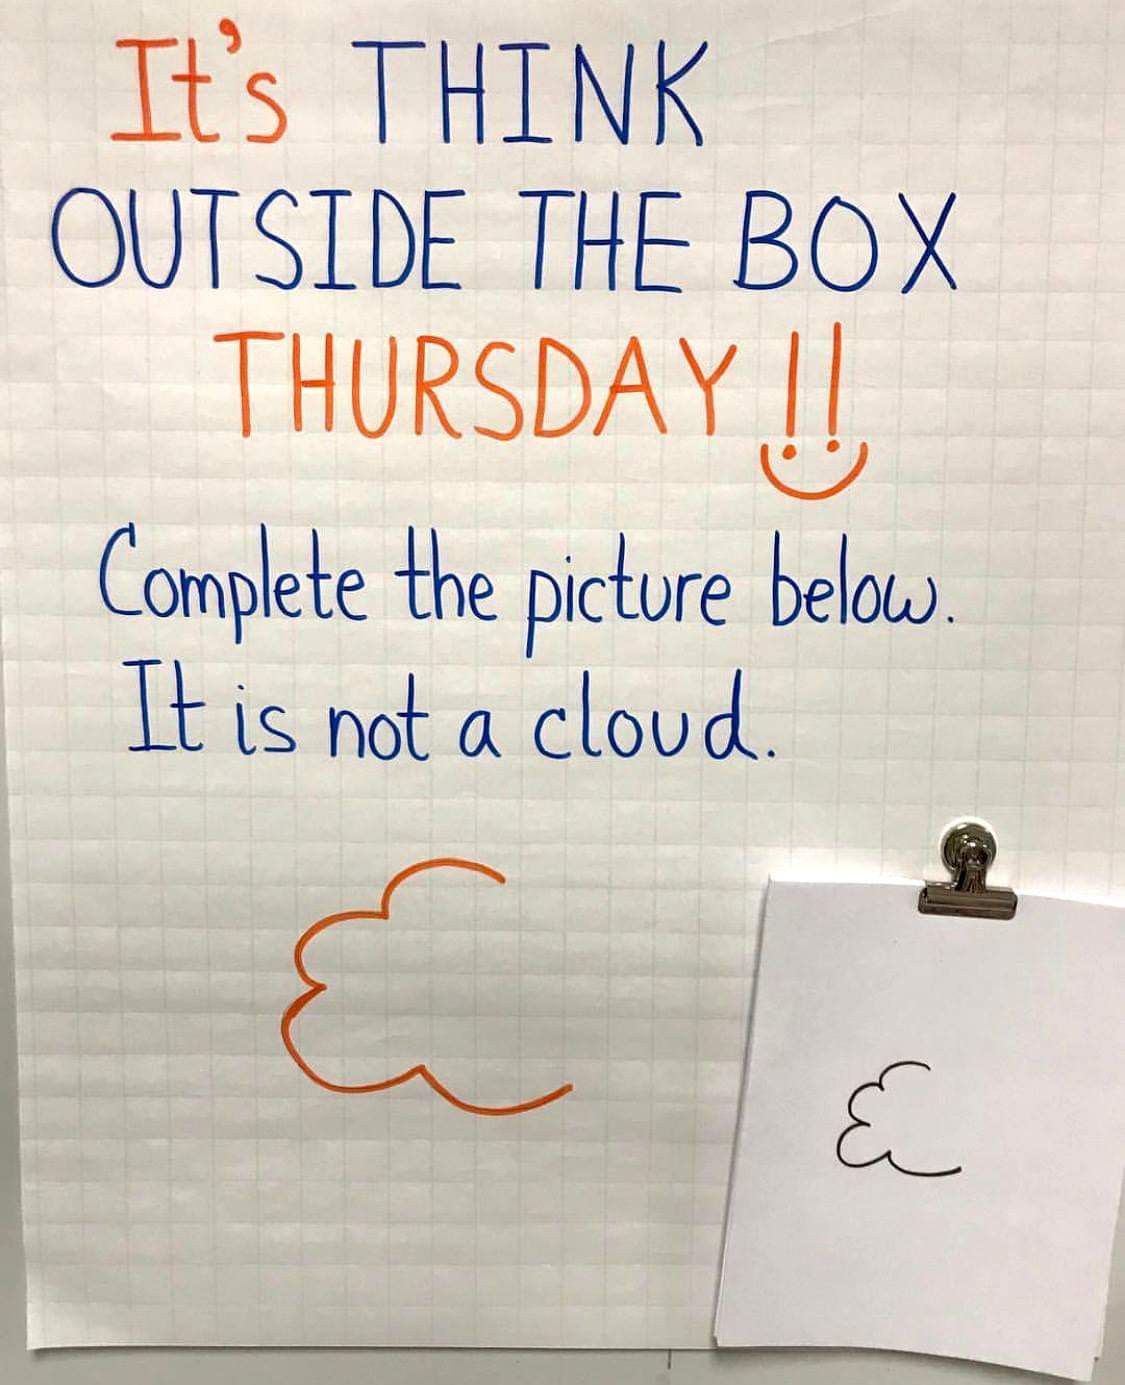 It's THINK
OUTSIDE THE BOX
THURSDAY!!
Complete the picture below.
It is not a cloud.